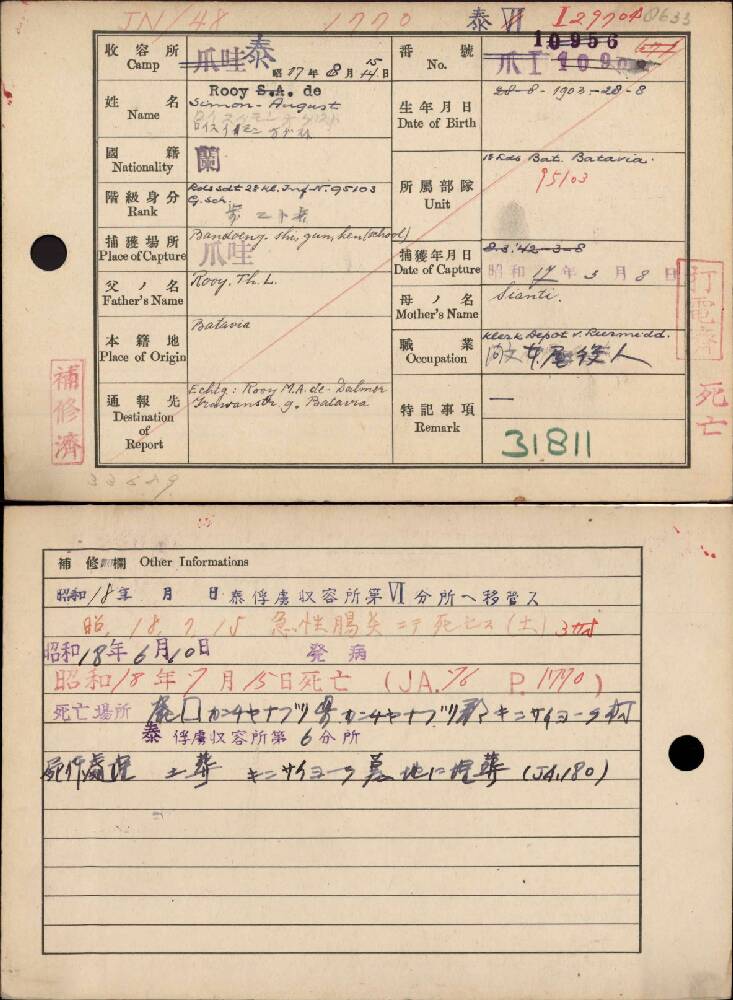 JN/48 1770 泰 VI I 29704
10956
收容所 Camp 爪哇 泰 昭17年8月15日
番號 No. 爪I 10902
姓名 Name Rooy S.A. de
Simon-August
生年月日 Date of Birth 28-8-1903-28-8
國籍 Nationality 蘭
階級身分 Rank Rds sdt 2e kl. Inf. N. 95103
G. Sch.
所属部隊 Unit 1e Eds Bat. Batavia.
95103
捕獲場所 Place of Capture Bandoeng-shi, gun, ken (school)
爪哇
捕獲年月日 Date of Capture 8.3.'42-3-8
昭和17年3月8日
父ノ名 Father's Name Rooy. Th. L.
母ノ名 Mother's Name Sianti.
本籍地 Place of Origin Batavia
職業 Occupation Klerk Depot v.
役人
通報先 Destination of Report Echtg: Rooy M.A. de-
g. Batavia
特記事項 Remark —
31811
補修濟
打電濟
死亡
補修欄 Other Informations
昭和18年 月 日 泰俘虜収容所第VI分所ヘ移管ス
昭.18.7.15 急性腸炎ニテ死亡ス
昭和18年6月10日 発病
昭和18年7月15日死亡 (JA.76 P.1770)
死亡場所 カンチヤナブリ県カンチヤナブリ郡キンサイヨーク村
泰俘虜収容所第6分所
屍体處理 土葬 キンサイヨーク墓地に埋葬 (JA.180)